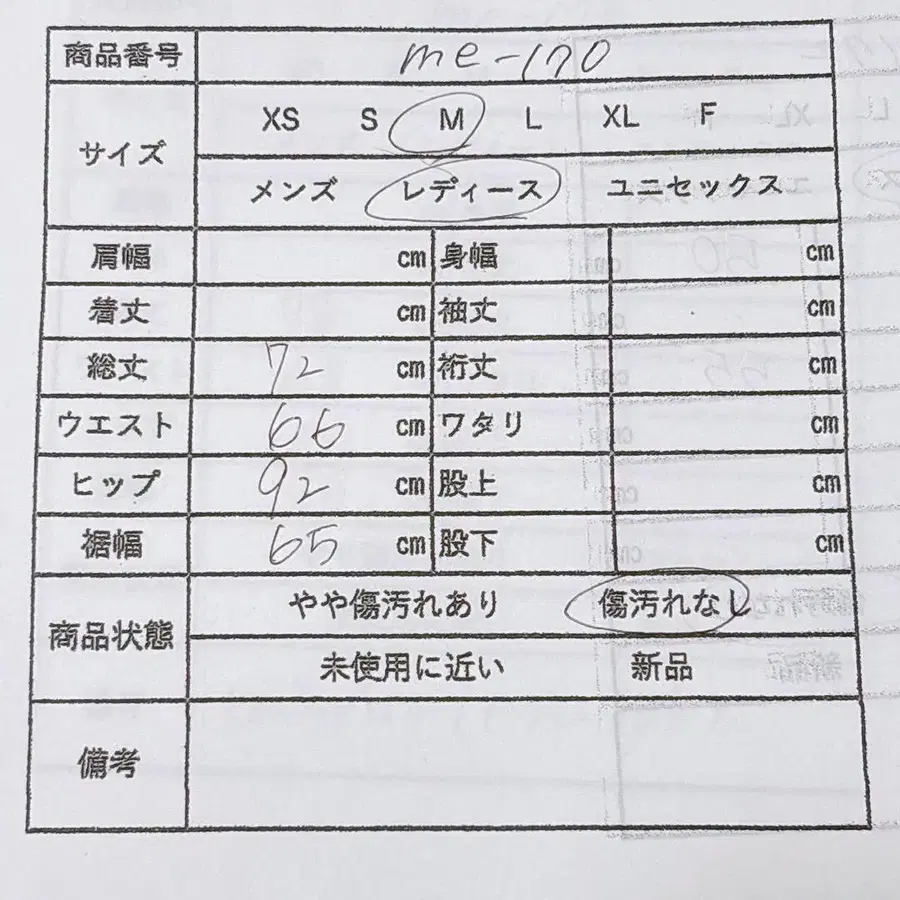 商品番号 me-170
サイズ XS S M L XL F
メンズ レディース ユニセックス
肩幅 cm 身幅 cm
着丈 cm 袖丈 cm
総丈 72 cm 裄丈 cm
ウエスト 66 cm ワタリ cm
ヒップ 92 cm 股上 cm
裾幅 65 cm 股下 cm
商品状態 やや傷汚れあり 傷汚れなし
未使用に近い 新品
備考